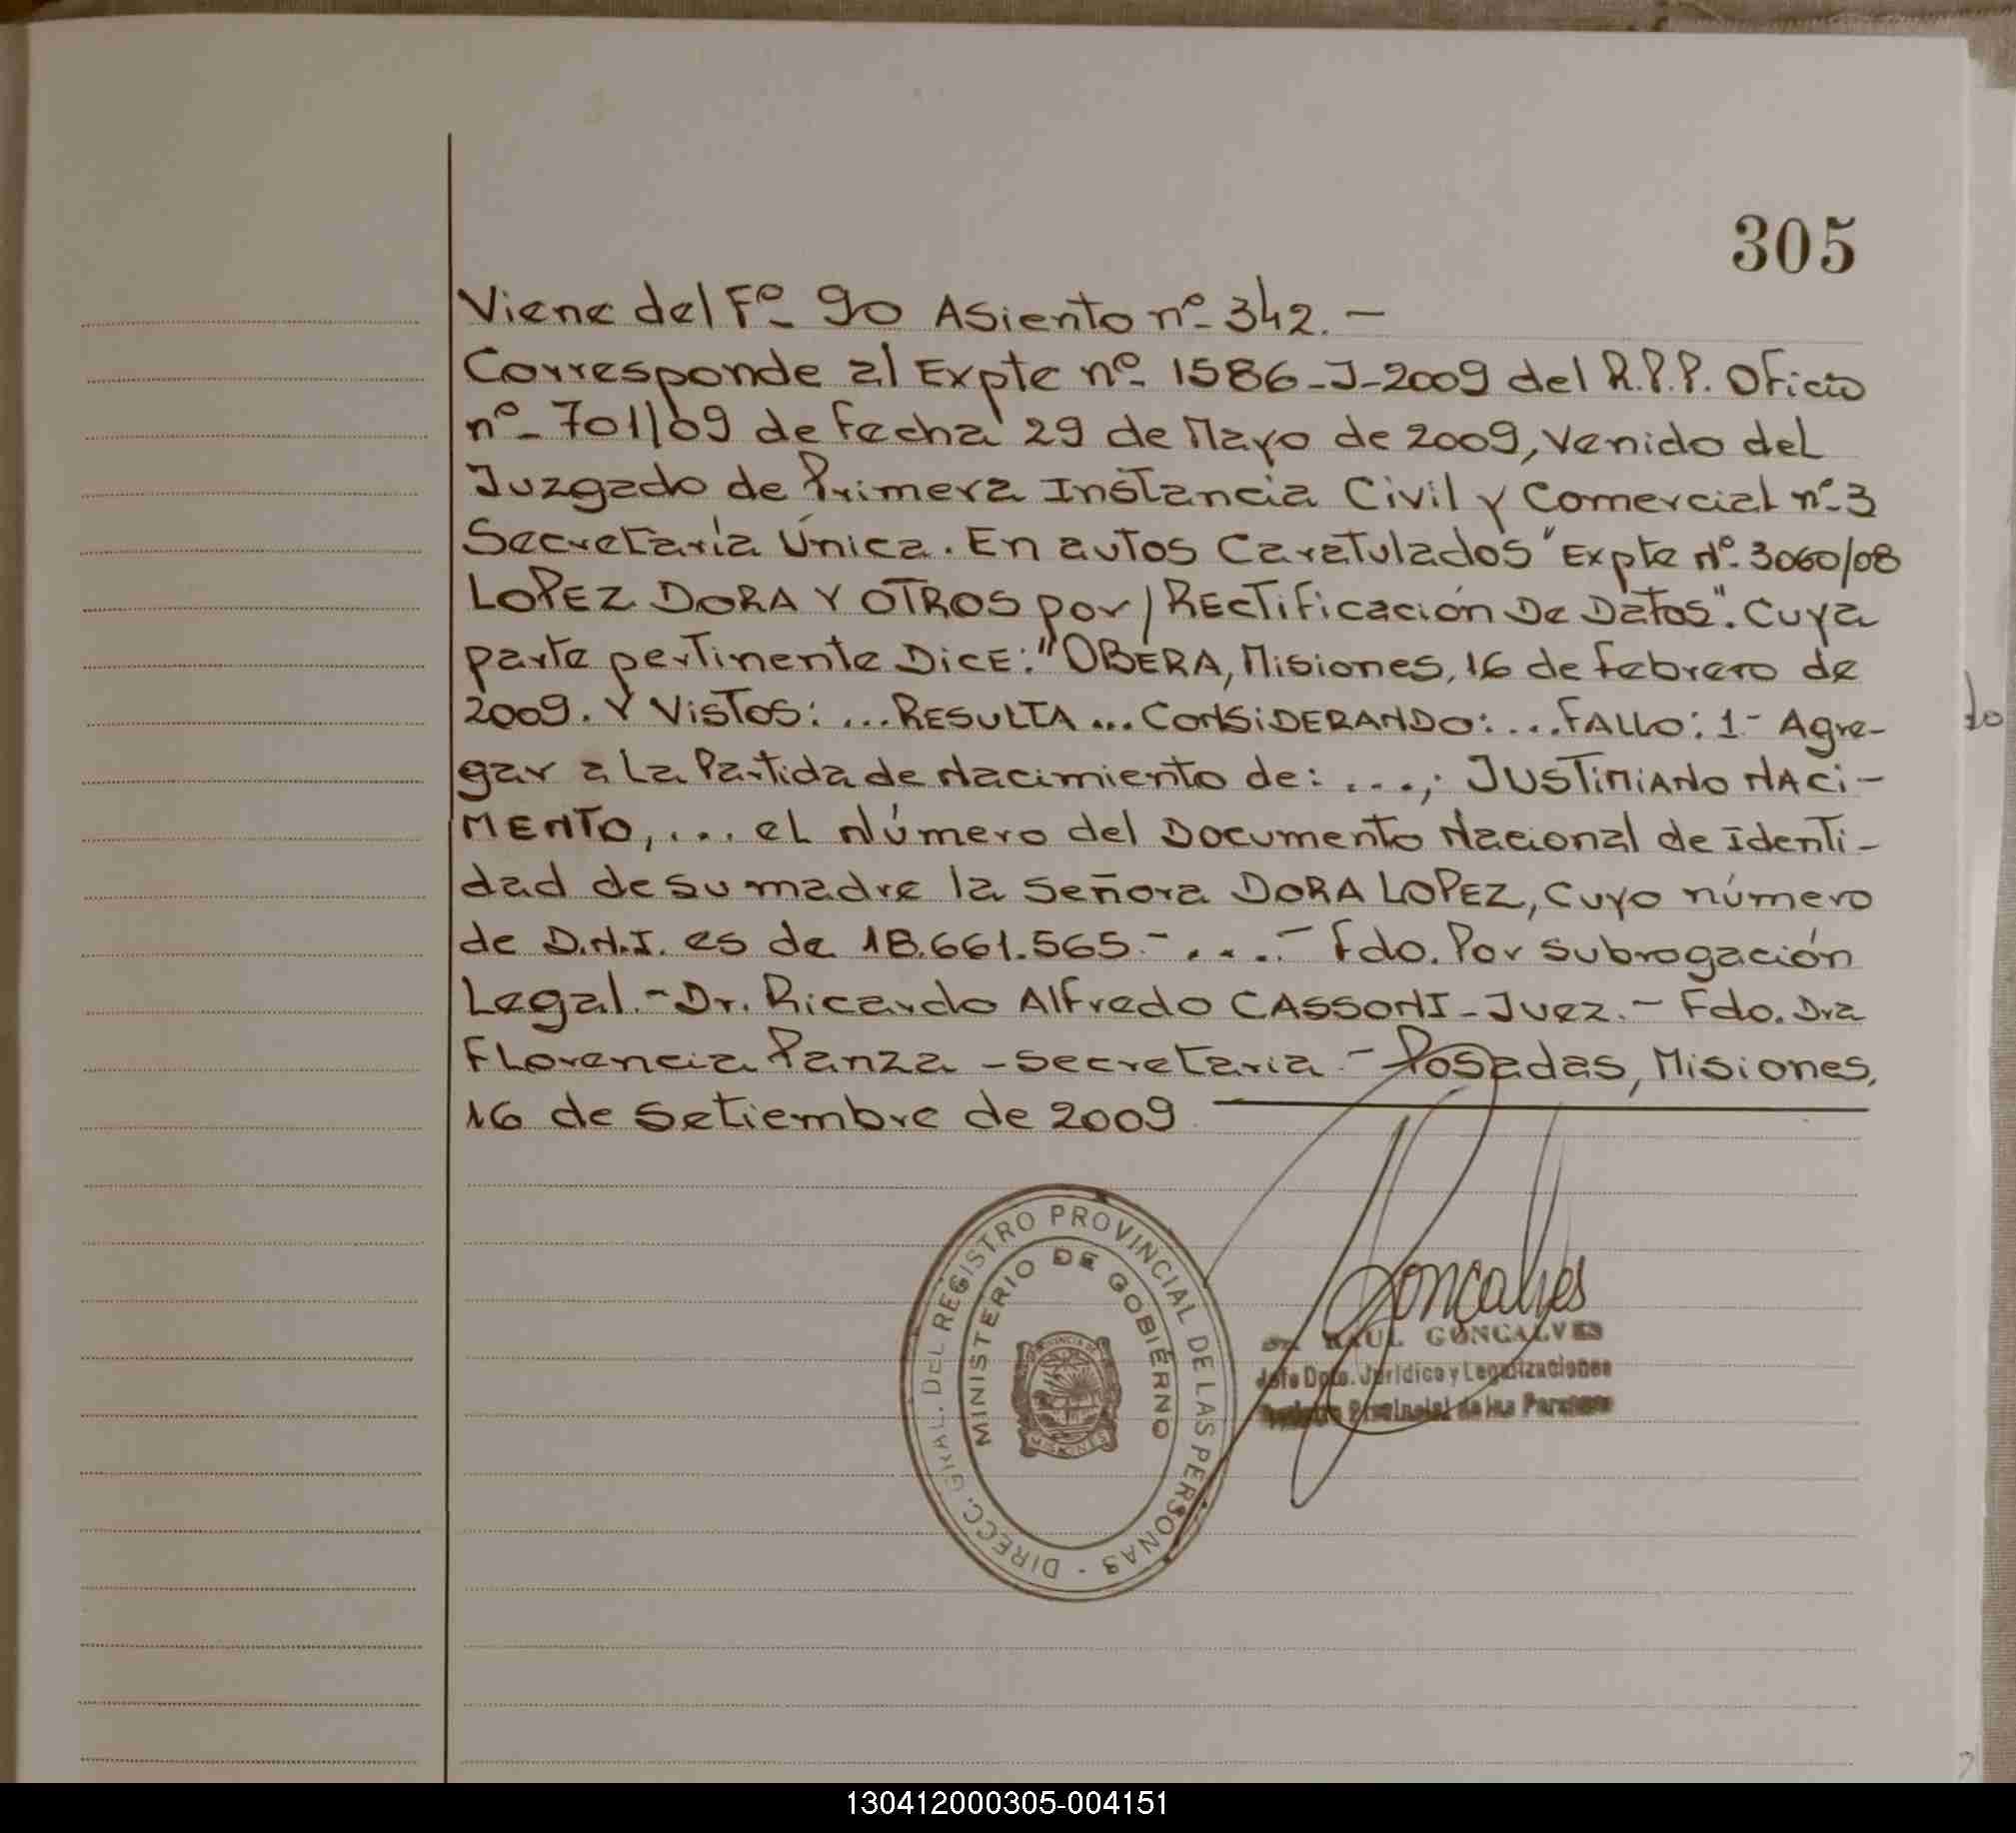 305
Viene del Fº 90 Asiento nº 342.-
Corresponde al Expte nº 1586-J-2009 del R.P.P. Oficio
nº 701/09 de fecha 29 de Mayo de 2009, venido del
Juzgado de Primera Instancia Civil y Comercial nº 3
Secretaría Única. En autos Caratulados "Expte Nº 3060/08
LOPEZ DORA Y OTROS por/ RECTificación De Datos". Cuya
parte pertinente DiCE: "OBERA, Misiones, 16 de febrero de
2009. Y VisTos: ... RESULTA ... CONSiDERANDO: ... FALLO: 1- Agre-
gar a La Partida de Nacimiento de: ...; JUSTINIANO NACi-
MENTO, ... eL Número del Documento Nacional de Identi-
dad de su madre la Señora DORA LOPEZ, Cuyo número
de D.N.I. es de 18.661.565.- ....- Fdo. Por subrogación
Legal.- Dr. Ricardo Alfredo CASSONI - Juez.- Fdo. Dra
FLorencia Panza - Secretaria - Posadas, Misiones,
16 de Setiembre de 2009
DIRECC. GRAL. DEL REGISTRO PROVINCIAL DE LAS PERSONAS -
MINISTERIO DE GOBIERNO
PROVINCIA DE
MISIONES
Goncalves
RAUL GONCALVES
Jefe Dpto. Jurídico y Legalizaciones
Registro Provincial de las Personas
do
130412000305-004151